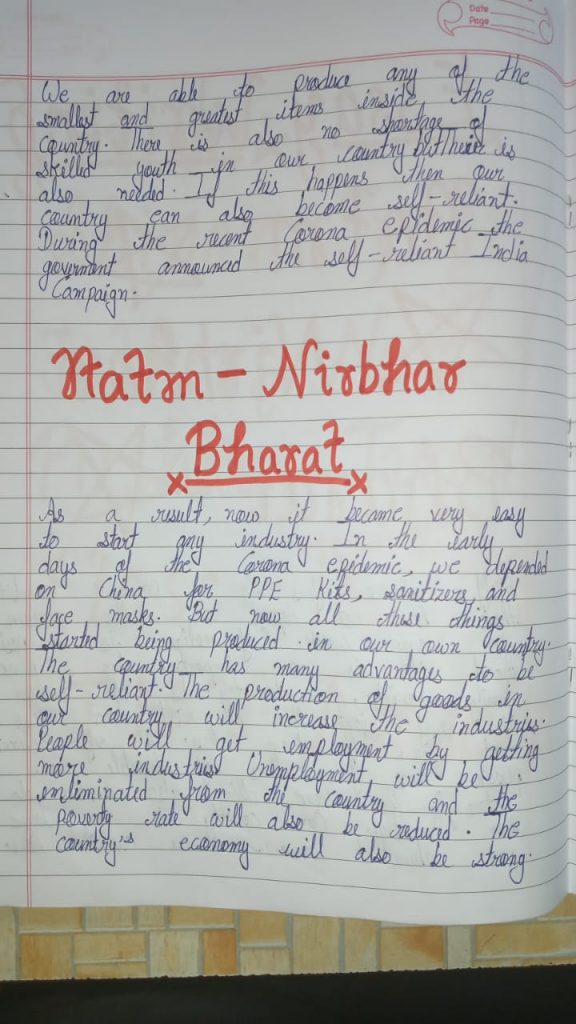 Date
Page
We are able to produce any of the
smallest and greatest items inside the
country. There is also no shortage of
skilled youth in our country but their is
also needed. If this happens then our
country can also become self-reliant.
During the recent Corona epidemic the
goverment announced the self-reliant India
Campaign.
Aatm - Nirbhar
Bharat
As a result, now it became very easy
to start any industry. In the early
days of the Corona epidemic, we depended
on China for PPE Kits, sanitizers and
face masks. But now all these things
started being produced in our own country.
The country has many advantages to be
self-reliant. The production of goods in
our country will increase the industries.
People will get employment by getting
more industries Unemployment will be
enliminated from the country and the
poverty rate will also be reduced. The
country's economy will also be strong.